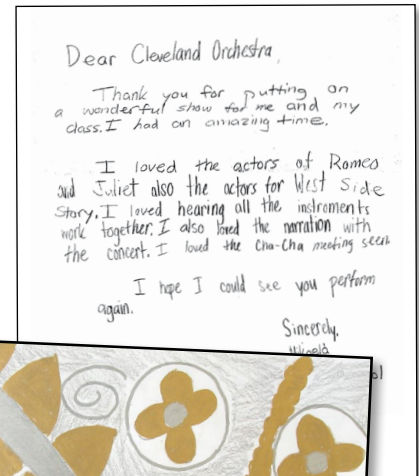 Dear Cleveland Orchestra,
Thank you for putting on
a wonderful show for me and my
class. I had an amazing time.
I loved the actors of Romeo
and Juliet also the actors for West Side
Story. I loved hearing all the instroments
work together. I also loved the narration with
the concert. I loved the Cha-Cha meeting seen
I hope I could see you perform
again.
Sincerely,